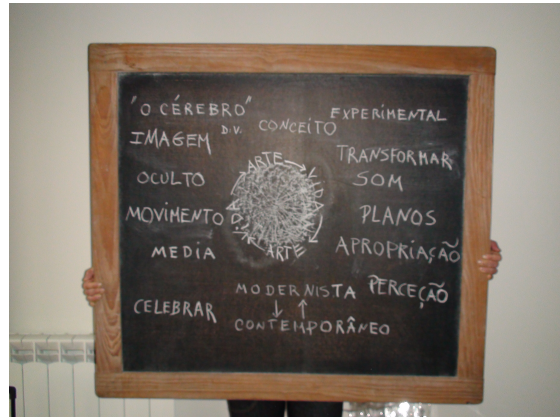 "O CÉREBRO"
D.V. CONCEITO
EXPERIMENTAL
IMAGEM
TRANSFORMAR
OCULTO
ARTE → VIDA
SOM
MOVIMENTO
PLANOS
ARTE
MEDIA
APROPRIAÇÃO
MODERNISTA
PERCEÇÃO
CELEBRAR
↓ ↑
CONTEMPORÂNEO